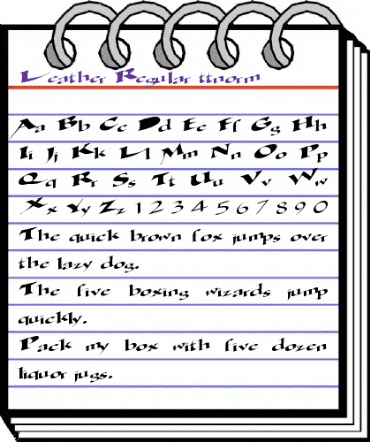 Leather Regular ttnorm
Aa Bb Cc Dd Ee Ff Gg Hh
Ii Jj Kk Ll Mm Nn Oo Pp
Qq Rr Ss Tt Uu Vv Ww
Xx Yy Zz 1 2 3 4 5 6 7 8 9 0
The quick brown fox jumps over
the lazy dog.
The five boxing wizards jump
quickly.
Pack my box with five dozen
liquor jugs.